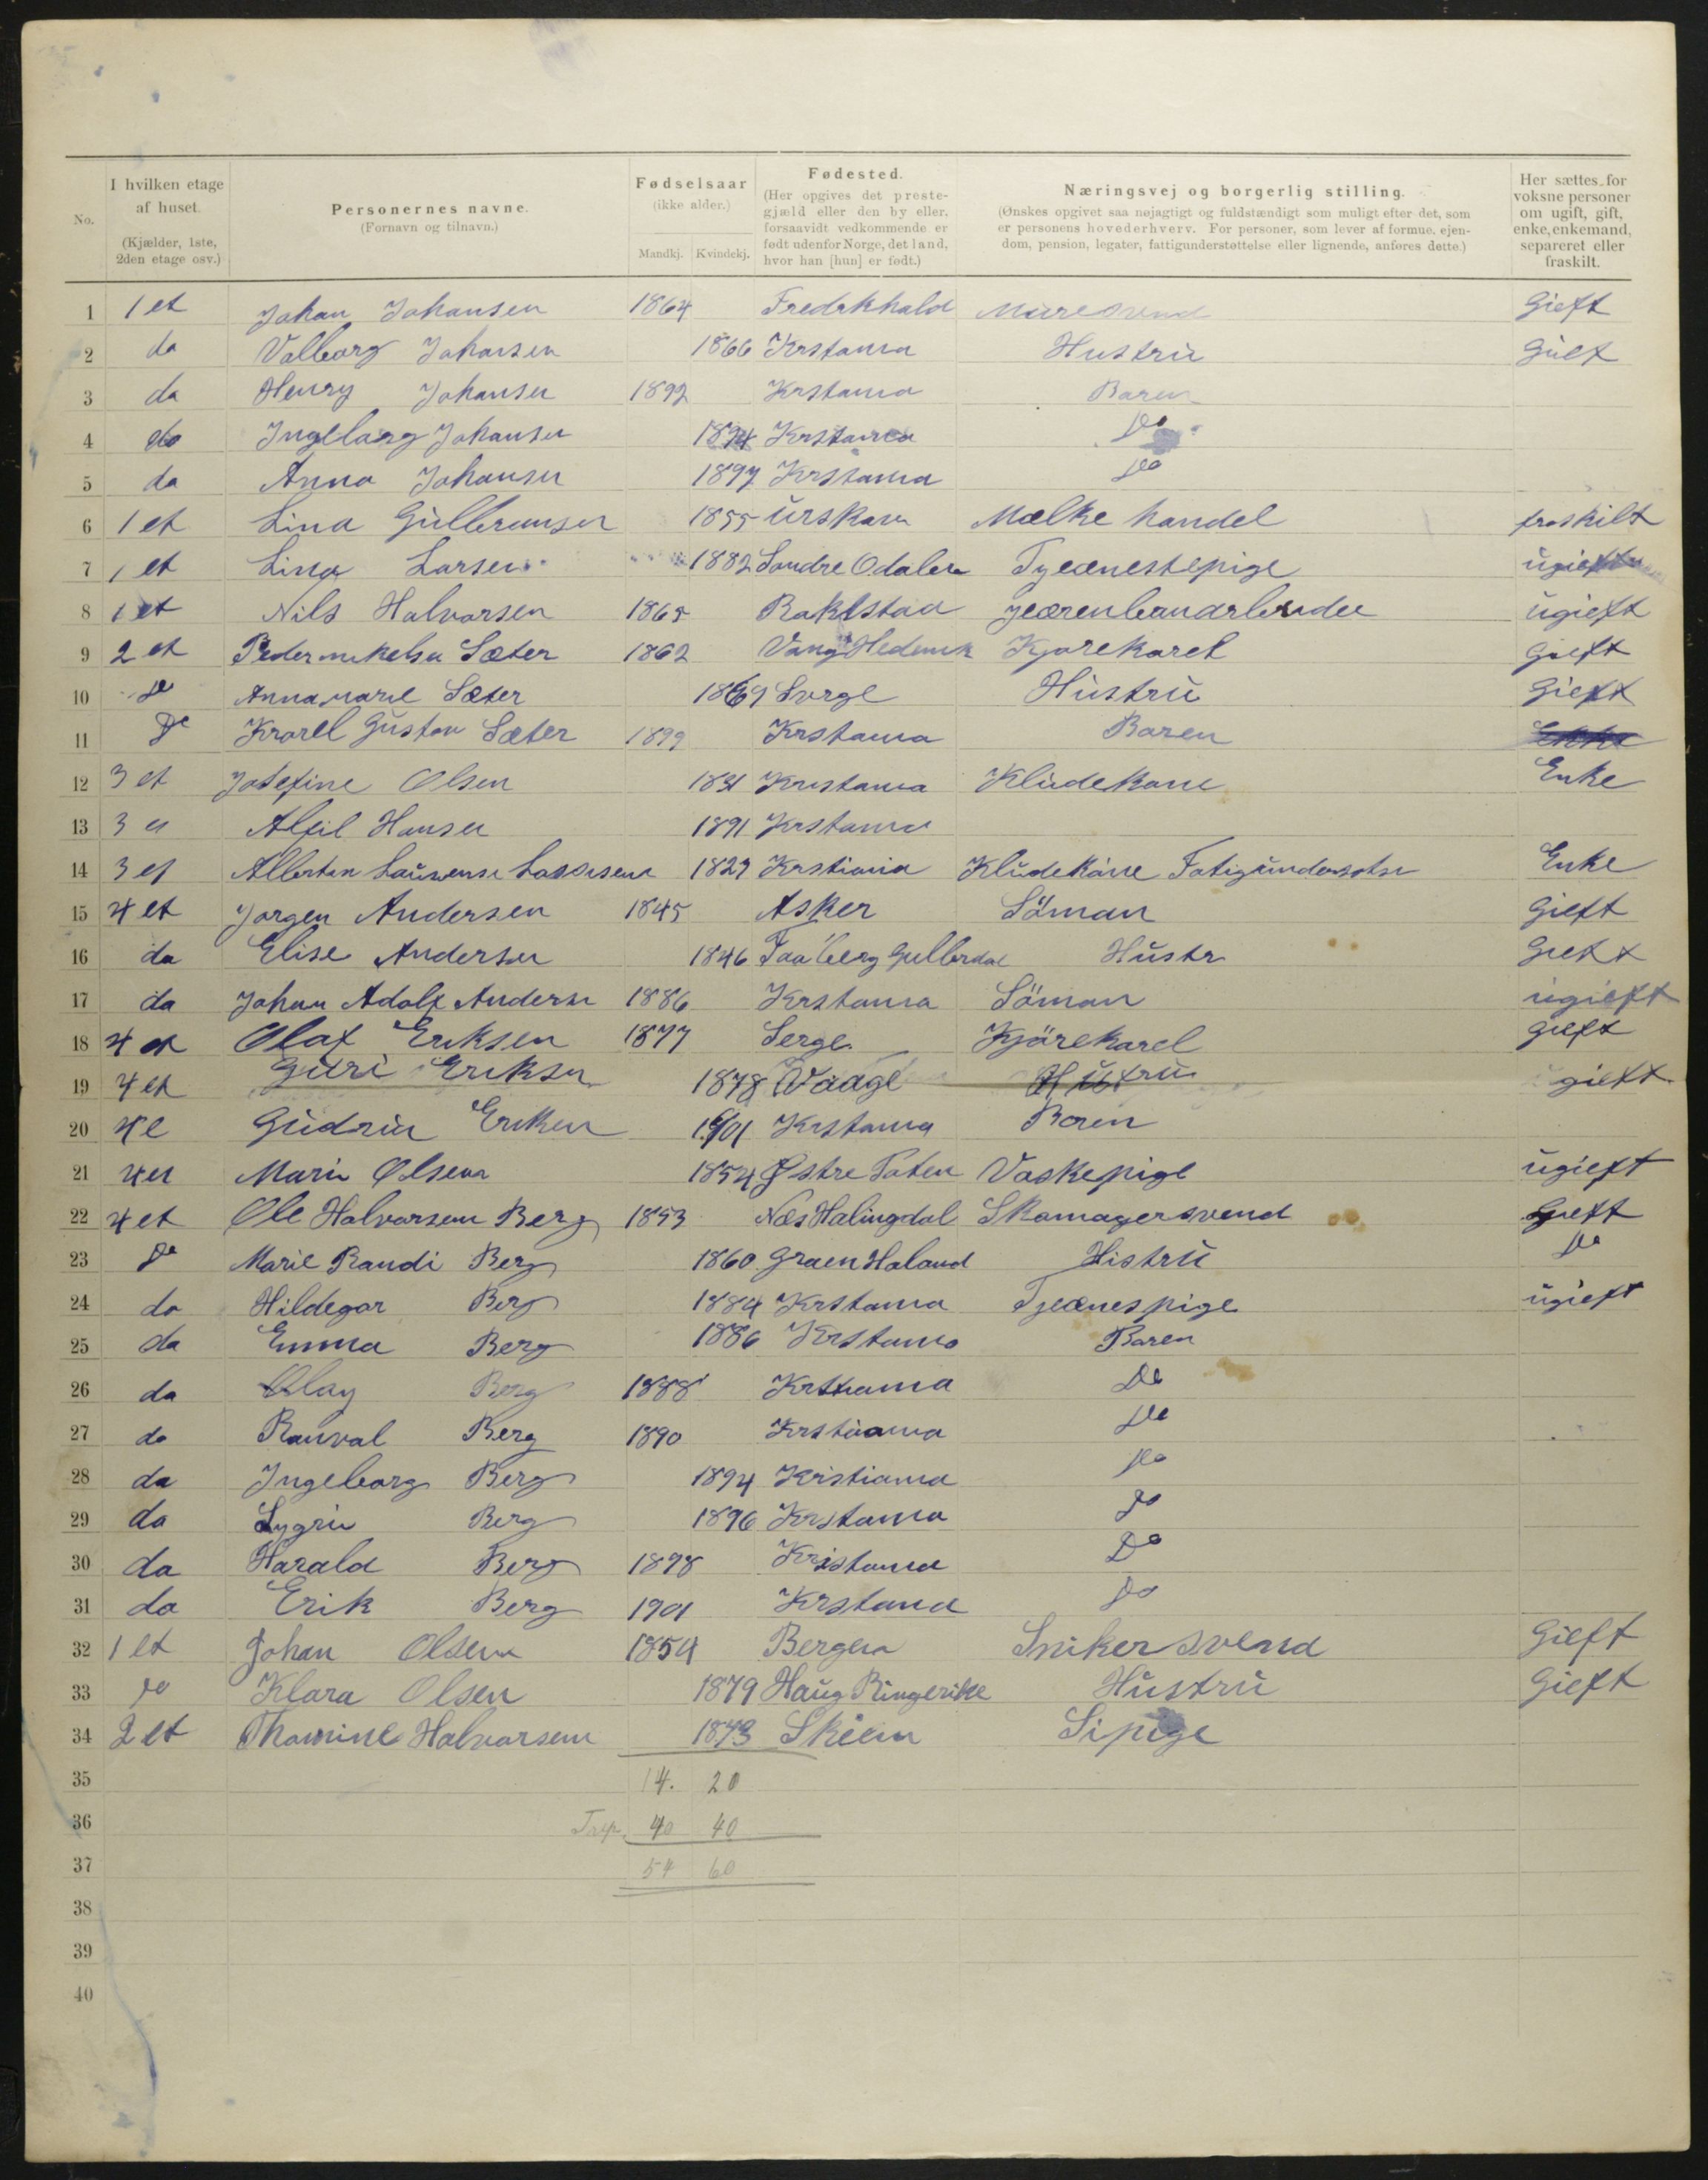 No.
I hvilken etage af huset. (Kjælder, 1ste, 2den etage osv.)
Personernes navne. (Fornavn og tilnavn.)
Fødselsaar (ikke alder.) Mandkj. Kvindekj.
Fødested. (Her opgives det prestegjæld eller den by eller, forsaavidt vedkommende er født udenfor Norge, det land, hvor han [hun] er født.)
Næringsvej og borgerlig stilling. (Ønskes opgivet saa nøjagtigt og fuldstændigt som muligt efter det, som er personens hovederhverv. For personer, som lever af formue, ejendom, pension, legater, fattigunderstøttelse eller lignende, anføres dette.)
Her sættes for voksne personer om ugift, gift, enke, enkemand, separeret eller fraskilt.
1 1 et Johan Johansen 1864 Fredrkhald Muresvend Gieft
2 da Valborg Johansen 1866 Krstania Hustru Gieft
3 da Henry Johansen 1892 Krstania Baren
4 do Ingeborg Johansen 1894 Krstania Do
5 da Anna Johansen 1897 Krstania Do
6 1 et Lina Gulbransen 1855 Urskau Mælke handel fraskilt
7 1 et Lina Larsen 1882 Søndre Odalen Tyeænestepige ugieft
8 1 et Nils Halvorsen 1865 Rakkestad ugieft
9 2 et Peder Mikelsen Sæter 1862 Vang Hedemk Kjørekarel Gieft
10 Do Anna Marie Sæter 1869 Sverge Hustru Gieft
11 Do Krarel Gustav Sæter 1899 Krstania Baren
12 3 et Josefine Olsen 1831 Krestania Kludekone Enke
13 3 et Alfil Hansen 1891 Krstania
14 3 et Albertine 1827 Krstiania Kludekone Enke
15 4 et Jørgen Andersen 1845 Asker Söman Gieft
16 da Elise Andersen 1846 Faaberg Gulbrdal Hustr Gieft
17 da Johan Adolf Andersn 1886 Krstania Söman ugieft
18 4 et Olaf Eriksen 1877 Serge Kjörekarel gieft
19 4 et Guri Eriksn 1878 Vaage Hustru gieft
20 4 e Gudrun Eriksen 1901 Krstania Boren
21 4 et Marie Olsen 1854 Østre Toten Vaskepige ugieft
22 4 et Ole Halvorsen Berg 1853 Næs Halingdal Skomagersvend Gieft
23 Do Marie Randi Berg 1860 Graen Haland Histru Do
24 do Hildegar Berg 1884 Krstania Tjeænespige ugieft
25 da Emma Berg 1886 Krstania Baren
26 da Olay Berg 1888 Krstiania Do
27 do Ranval Berg 1890 Krstiania Do
28 da Ingeborg Berg 1894 Kristiania Do
29 da Sygrin Berg 1896 Krstania Do
30 da Harald Berg 1898 Kristania Do
31 da Erik Berg 1901 Krstania Do
32 1 et Johan Olsen 1854 Bergen Snikersvend Gieft
33 Do Klara Olsen 1879 Haug Ringerike Hustru Gieft
34 2 et Thomine Halvorsen 1873 Skien Sipige
35 14. 20
36 Trsp. 40 40
37 54 60
38
39
40